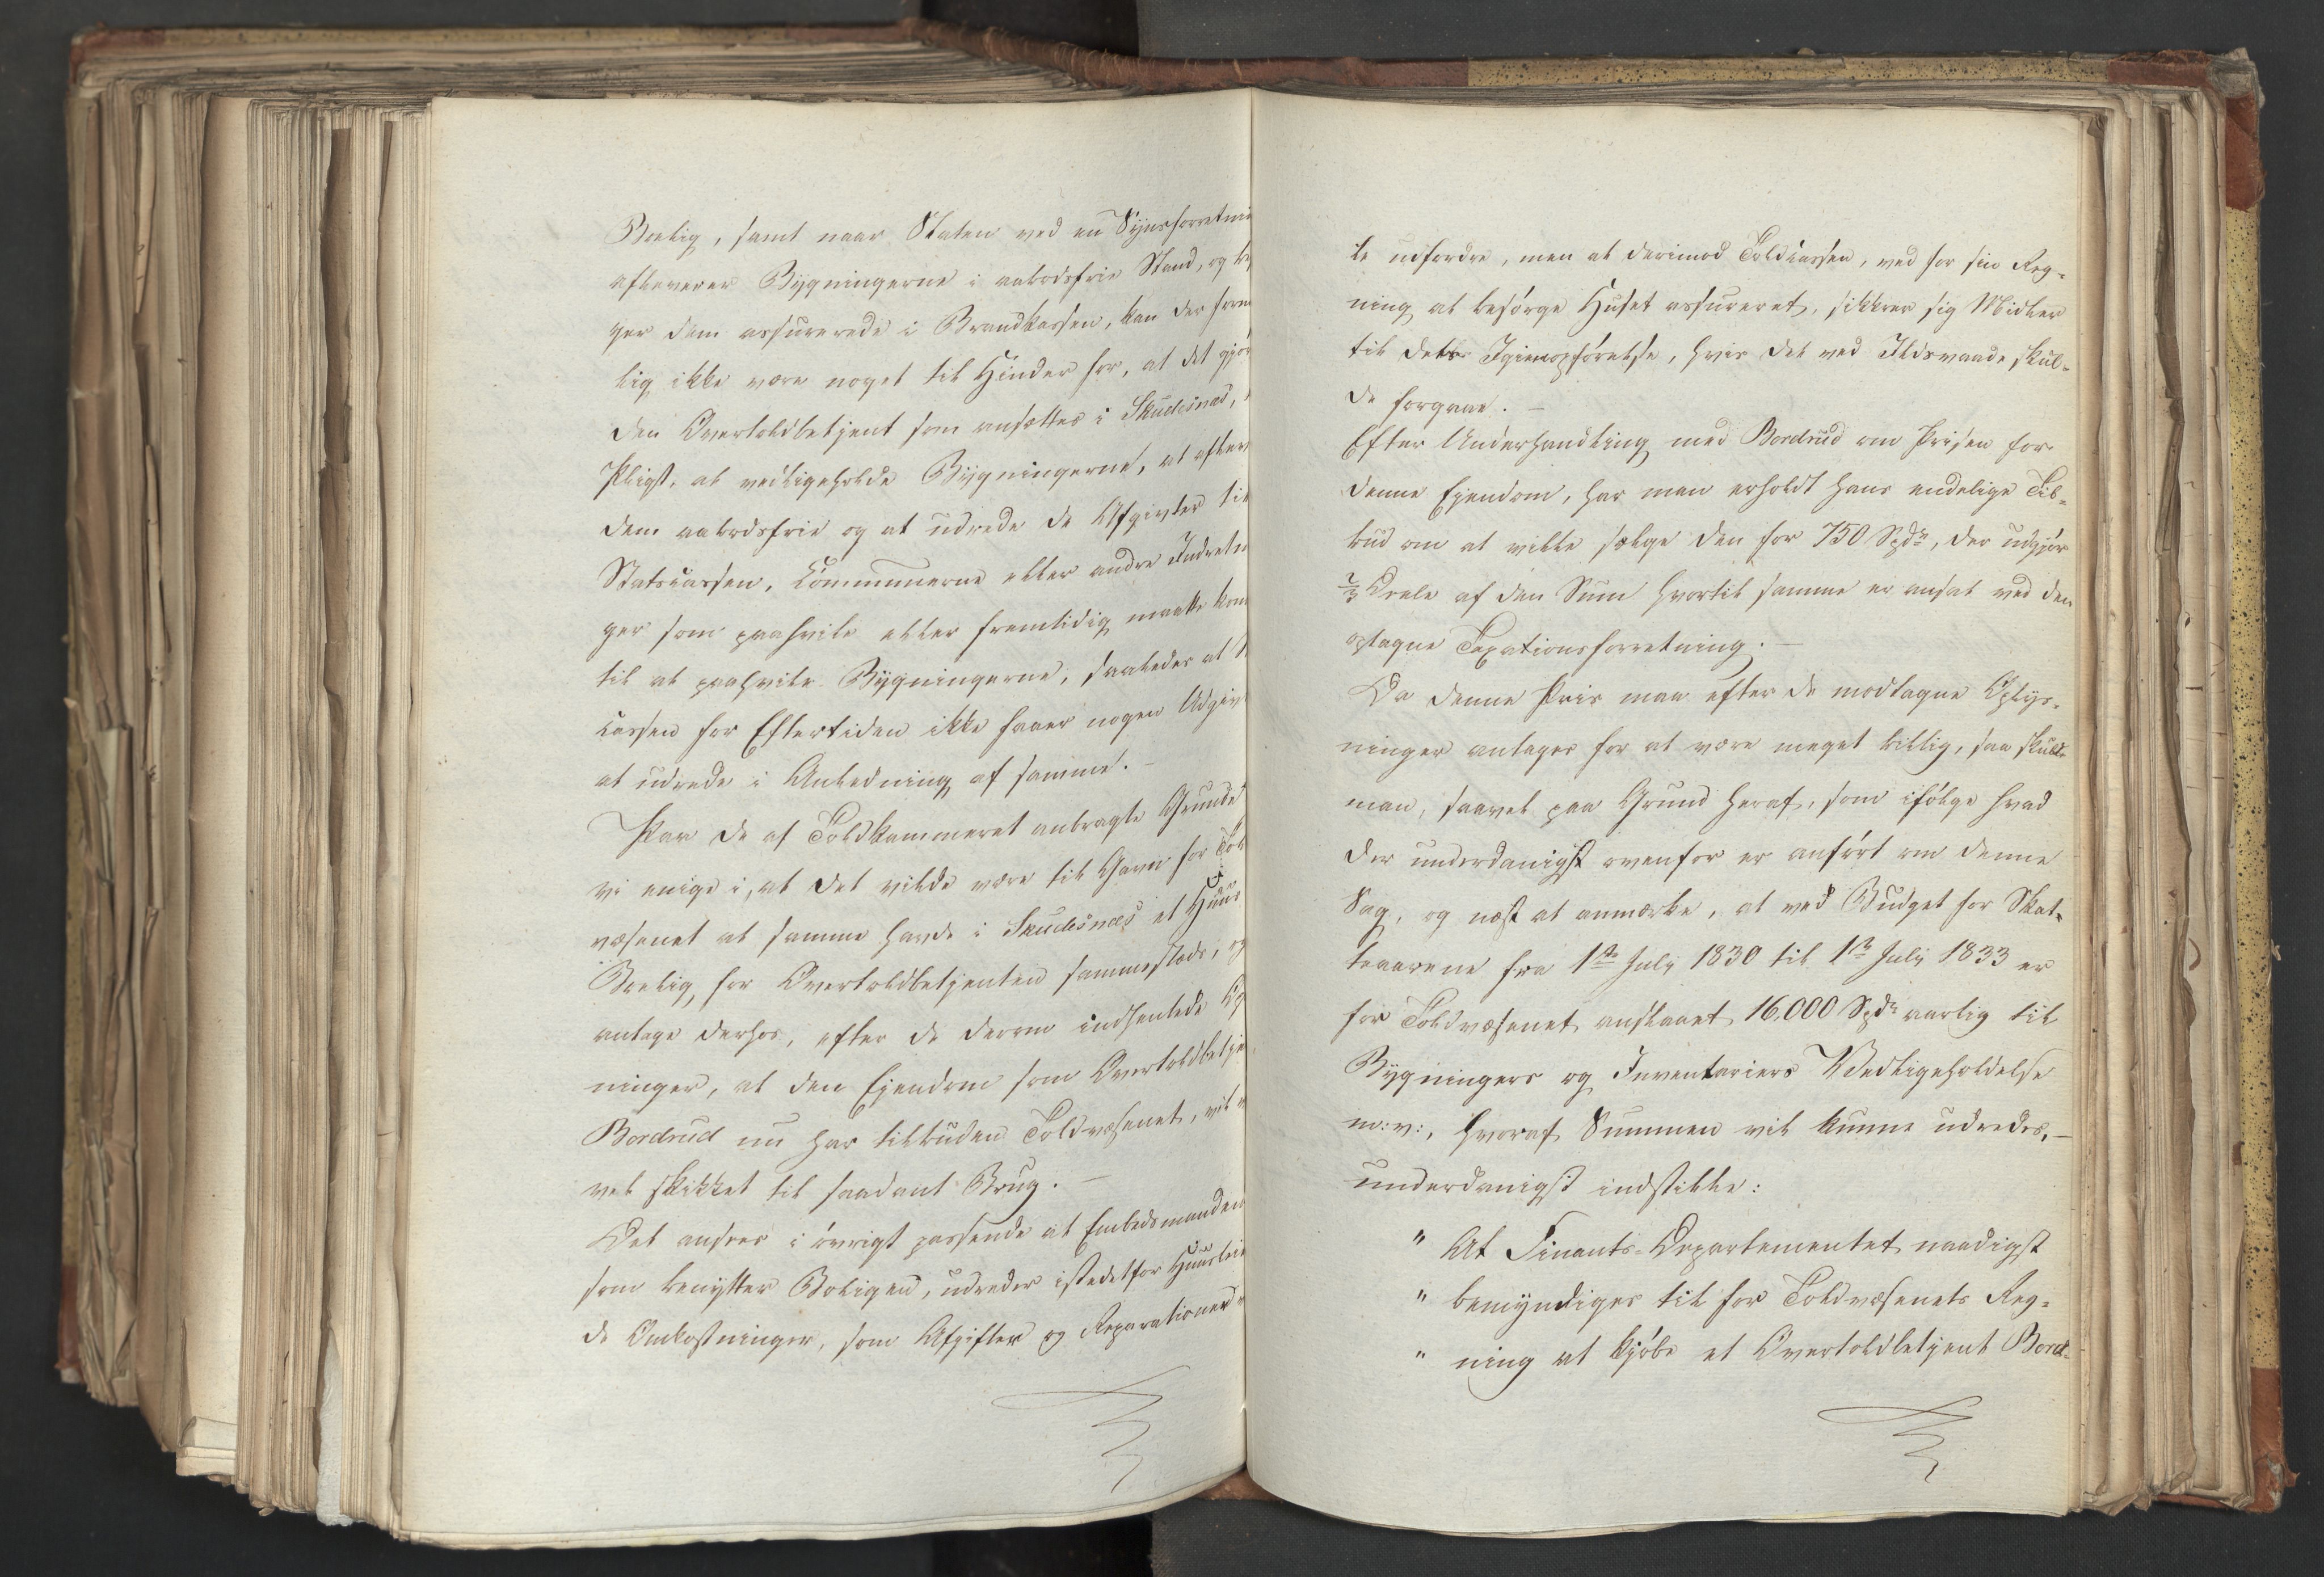 Boelig, samt naar Staten ved en Synsforretni
afleverer Bygningerne i aabodsfrie Stand, og be
ger dem assurerede i Brandkassen, kan der form
lig ikke være noget til Hinder for, at det gjør
den Overtoldbetjent som ansættes i Skudesnæs,
Pligt, at vedligeholde Bygningerne, at aflev
dem aabodsfrie og at udrede de Afgivter til
Statscassen, Communerne eller andre Indretn
ger som paahvile eller fremtidig maatte kom
til at paahvile Bygningerne, saaledes at
cassen for Eftertiden ikke faaer nogen Udgiv
at udrede i Anledning af samme. –
Paa de af Toldkammeret anbragte Grunde
vi enige i, at det vilde være til Gavn for Tol
væsenet at samme havde i Skudesnæs et Huus
Boelig for Overtoldbetjenten sammesteds, og
antage derhos, efter de derom indhentede Op
ninger, at den Ejendom som Overtoldbetje
Bordrud nu har tilbuden Toldvæsenet, vil
vel skikket til saadant Brug. –
Det ansees i øvrigt passende at Embedsmanden
som benytter Boligen, udreder istedetfor Huusleie
de Omkostninger, som Afgifter og Reparationer
le udfordre, men at derimod Toldcassen, ved for sin Reg-
ning at besørge Huset assureret, sikkrer sig Midler
til dets Igienopførelse, hvis det ved Ildsvaade skul-
de forgaae. –
Efter Underhandling med Bordrud om Prisen for
denne Ejendom, har man erholdt hans endelige Til-
bud om at ville sælge den for 750 Spdr, der udgjør
2/3 Deele af den Sum hvortil samme er ansat ved den
optagne Taxationsforretning. –
Da denne Pris maa efter de modtagne Oplys-
ninger antages for at være meget billig, saa skulde
man, saavel paa Grund heraf, som ifølge hvad
der underdanigst ovenfor er anført om denne
Sag, og næst at anmærke, at ved Budget for Skat-
teaarene fra 1ste July 1830 til 1ste July 1833 er
for Toldvæsenet anslaaet 16,000 Spdr aarlig til
Bygningers og Inventariers Vedligeholdelse
m: v:, hvoraf Summen vil kunne udredes, –
underdanigst indstille:
" At Finants-Departementet naadigst
" bemyndiges til for Toldvæsenets Reg-
" ning at kjøbe et Overtoldbetjent Bord-